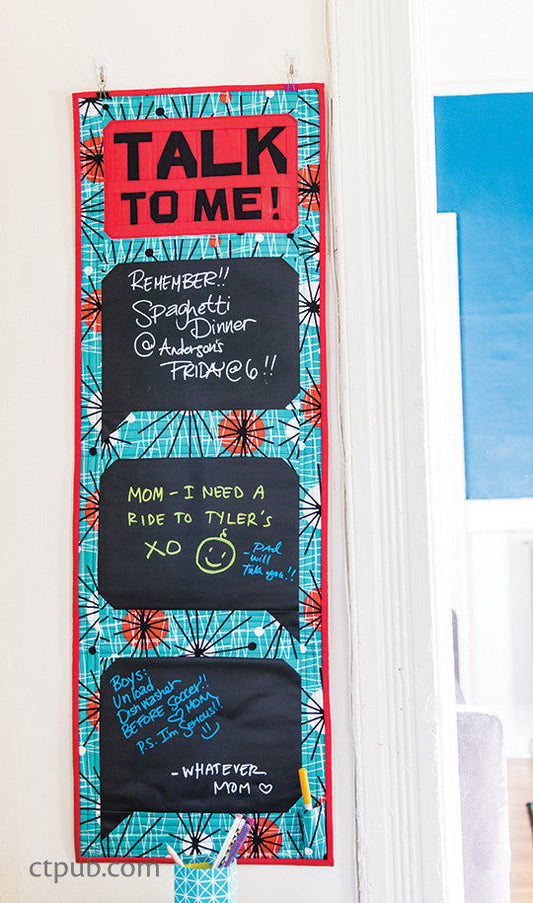 TALK
TO ME!
REMEMBER!!
Spaghetti
Dinner
@ Anderson's
FRIDAY@6!!
MOM - I NEED A
RIDE TO TYLER'S
XO
- DAD
will
take you!!
Boys:
Unload
Dishwasher
BEFORE Soccer!!
♡ MOM
P.S. I'm Serious!!
- WHATEVER
MOM ♡
ctpub.com